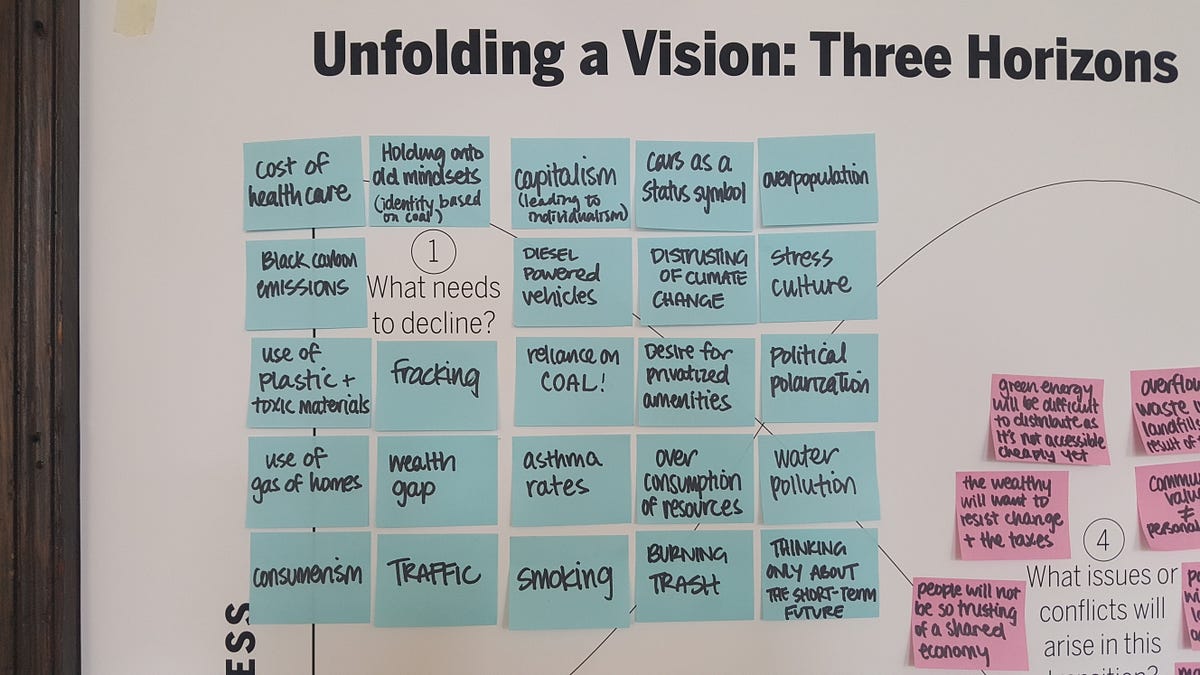 Unfolding a Vision: Three Horizons
cost of
health care
Holding onto
old mindsets
(identity based
on coal)
capitalism
(leading to
individualism)
cars as a
status symbol
overpopulation
Black carbon
emissions
1
What needs
to decline?
DIESEL
powered
vehicles
DISTRUSTING
OF CLIMATE
CHANGE
stress
culture
use of
plastic +
toxic materials
fracking
reliance on
COAL!
Desire for
privatized
amenities
political
polarization
use of
gas of homes
wealth
gap
asthma
rates
over
consumption
of resources
water
pollution
consumerism
TRAFFIC
smoking
BURNING
TRASH
THINKING
ONLY ABOUT
THE SHORT-TERM
FUTURE
green energy
will be difficult
to distribute as
it's not accessible
cheaply yet
overflow
waste
landfills
result of
the wealthy
will want to
resist change
+ the taxes
commu
value
≠
persona
4
What issues or
conflicts will
arise in this
transition?
people will not
be so trusting
of a shared
economy
ESS